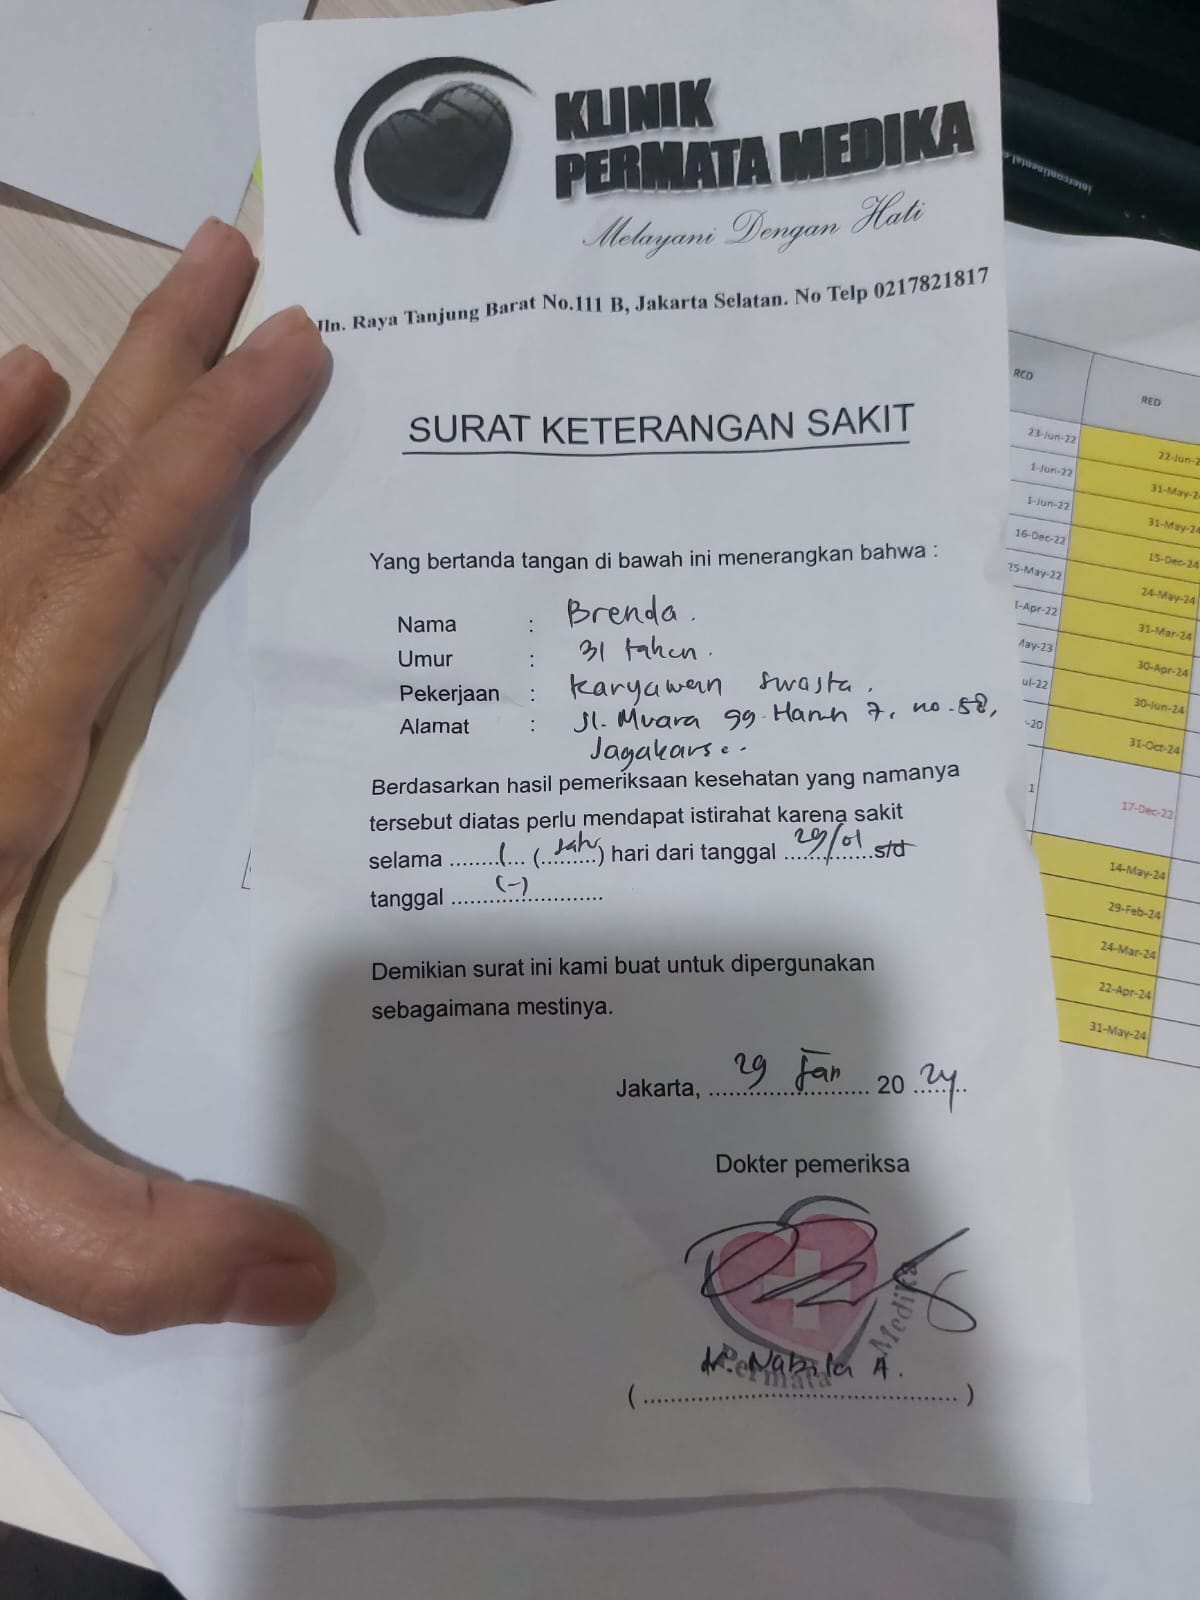 KLINIK
PERMATA MEDIKA
Melayani Dengan Hati
Jln. Raya Tanjung Barat No.111 B, Jakarta Selatan. No Telp 0217821817
SURAT KETERANGAN SAKIT
Yang bertanda tangan di bawah ini menerangkan bahwa :
Nama : Brenda.
Umur : 31 tahun.
Pekerjaan : Karyawan swasta.
Alamat : Jl. Muara gg. 7, no. 58,
Jagakarsa.
Berdasarkan hasil pemeriksaan kesehatan yang namanya
tersebut diatas perlu mendapat istirahat karena sakit
selama ........1... (satu) hari dari tanggal 29/01 s/d
tanggal (-)
Demikian surat ini kami buat untuk dipergunakan
sebagaimana mestinya.
Jakarta, 29 Jan 2024
Dokter pemeriksa
Permata Medika
dr. Nabila A.
(............................................)
intercontinental
RCD RED
23-Jun-22 22-Jun-2
1-Jun-22 31-May-2
1-Jun-22 31-May-24
16-Dec-22 15-Dec-24
25-May-22 24-May-24
1-Apr-22 31-Mar-24
May-23 30-Apr-24
ul-22 30-Jun-24
-20 31-Oct-24
1 17-Dec-22
14-May-24
29-Feb-24
24-Mar-24
22-Apr-24
31-May-24